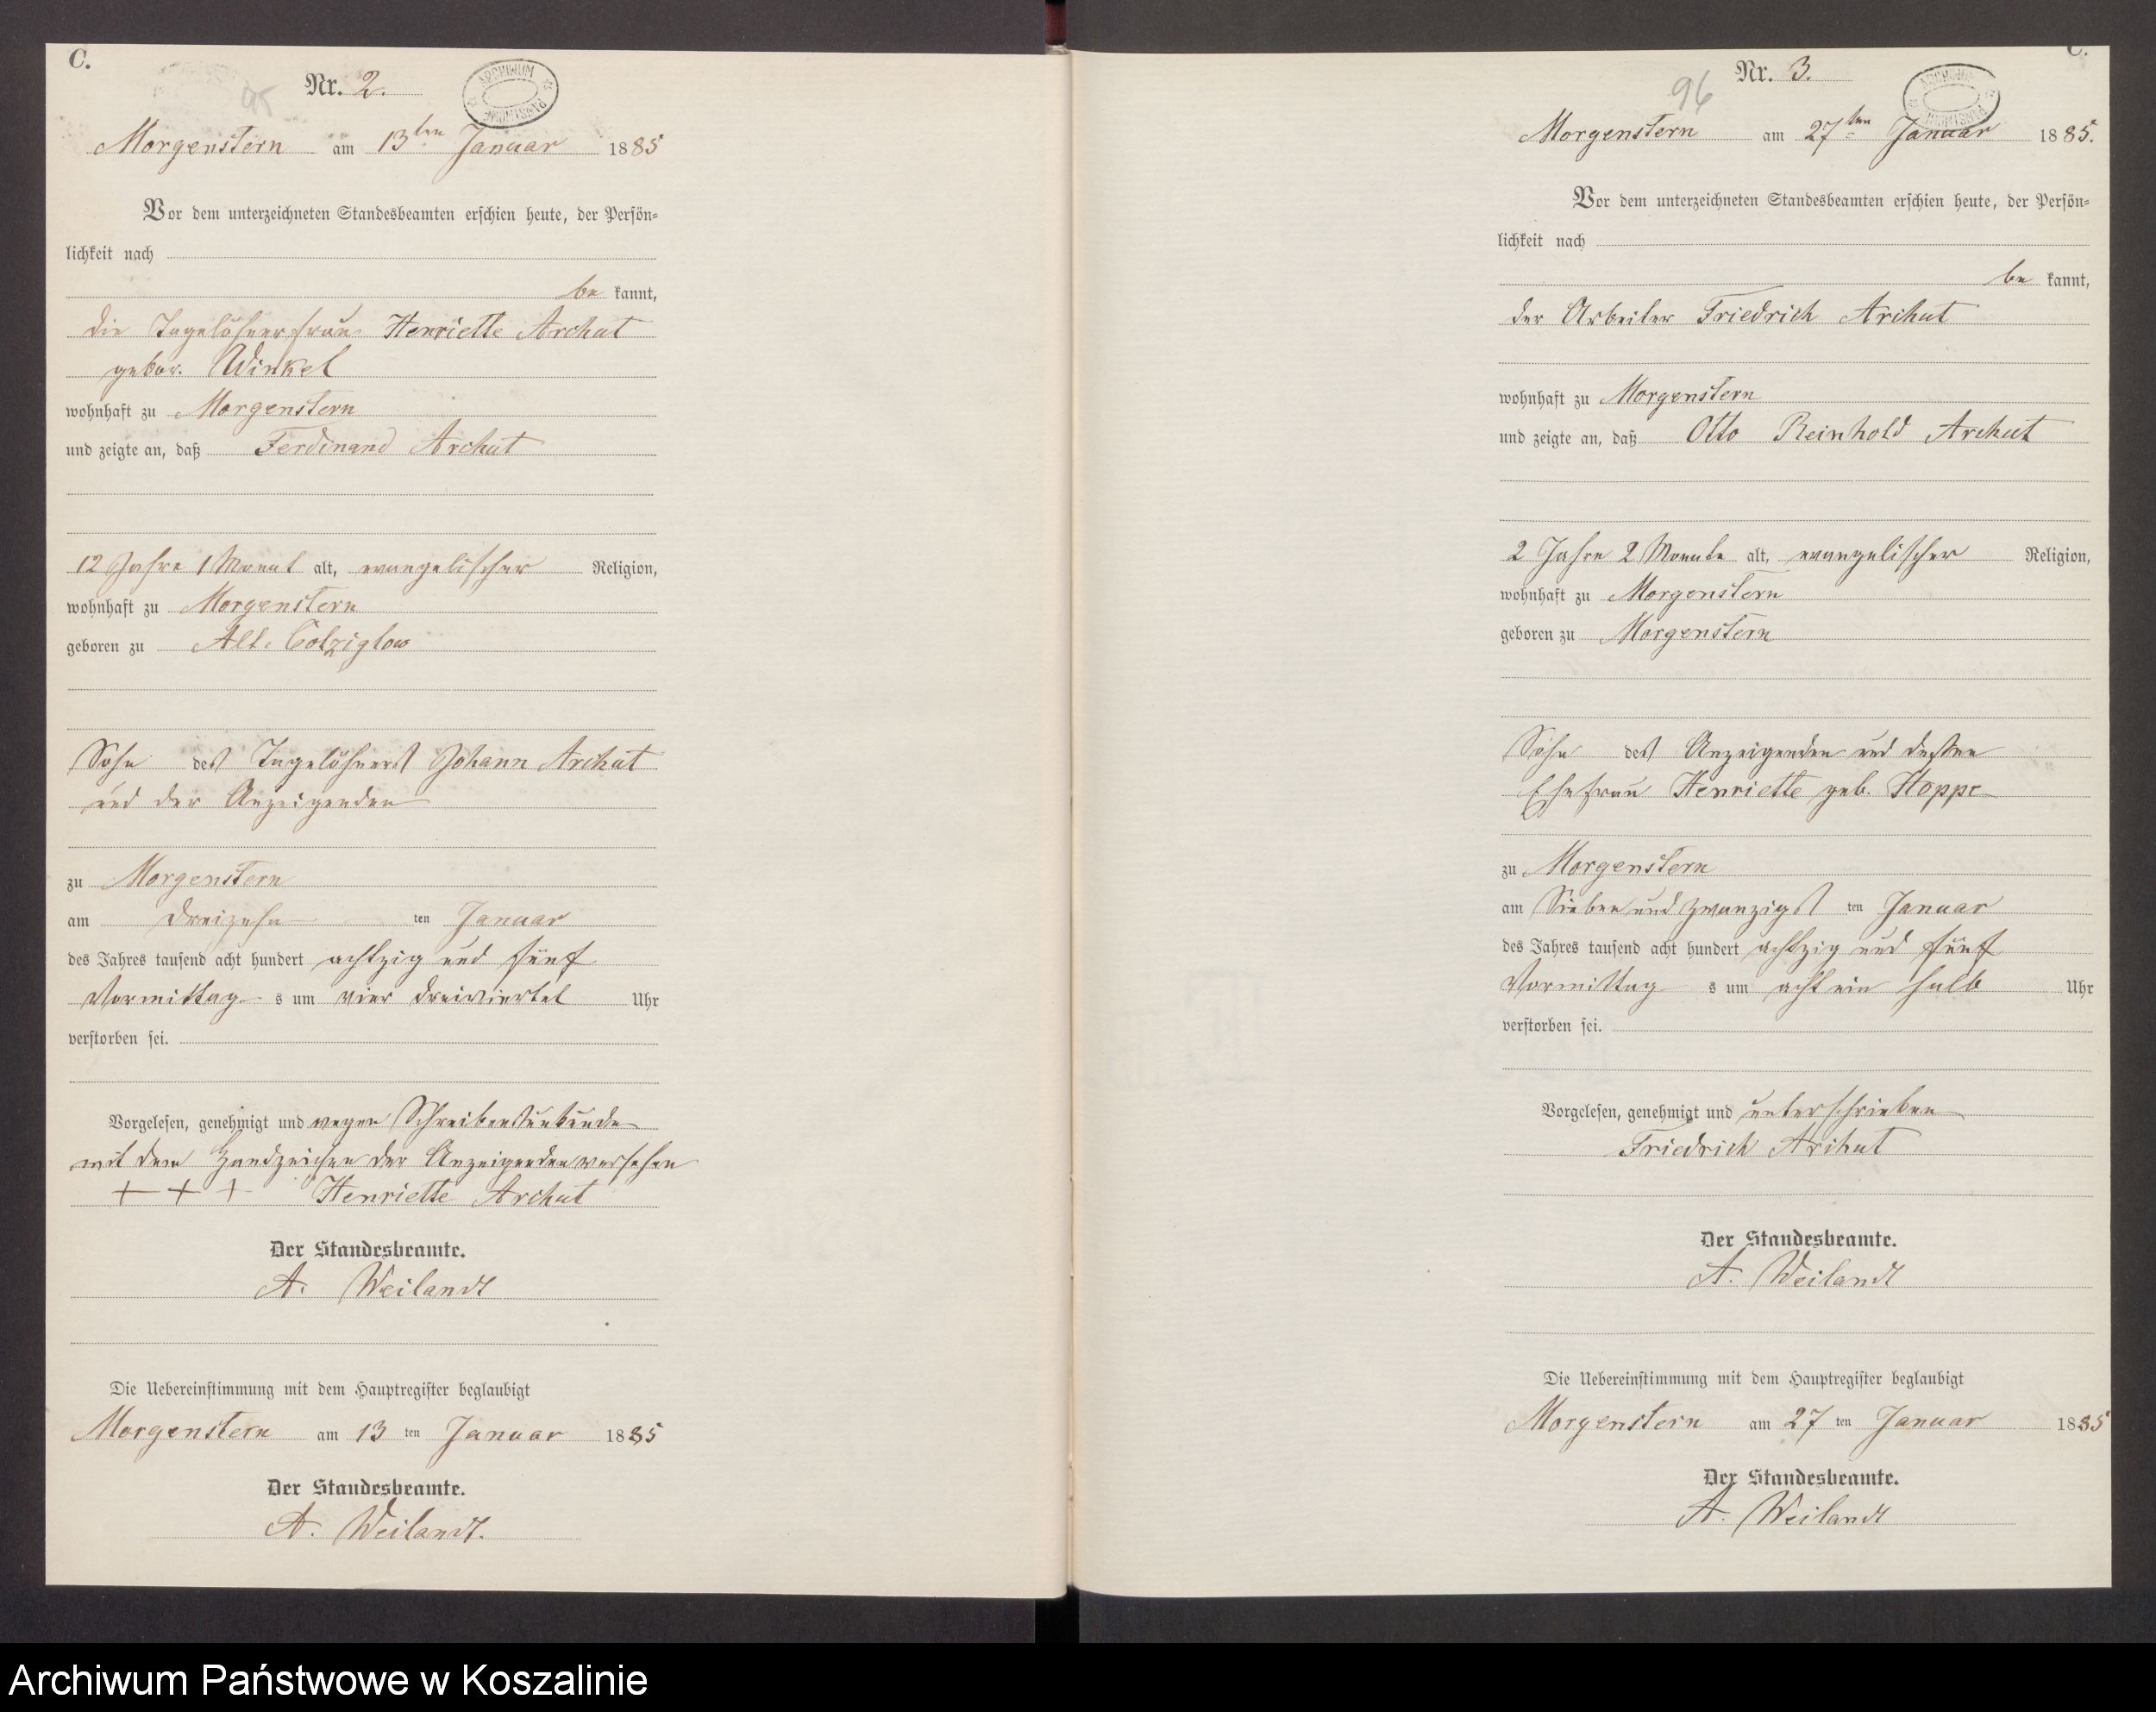 C.
Nr. 2.
95
ARCHIWUM PAŃSTWOWE
Morgenstern am 13ten Januar 1885
Vor dem unterzeichneten Standesbeamten erschien heute, der Persön-
lichkeit nach
be kannt,
die Tagelöhnerfrau Henriette Archut
gebor. Winkel
wohnhaft zu Morgenstern
und zeigte an, daß Ferdinand Archut
12 Jahre 1 Monat alt, evangelischer Religion,
wohnhaft zu Morgenstern
geboren zu Alt. Colziglow
Sohn des Tagelöhners Johann Archut
und der Anzeigenden
zu Morgenstern
am dreizehn ten Januar
des Jahres tausend acht hundert achtzig und fünf
Vormittag s um vier dreiviertel Uhr
verstorben sei.
Vorgelesen, genehmigt und wegen Schreibensunkunde
mit dem Handzeichen der Anzeigenden versehen
+ + + Henriette Archut
Der Standesbeamte.
A. Weilandt
Die Uebereinstimmung mit dem Hauptregister beglaubigt
Morgenstern am 13 ten Januar 1885
Der Standesbeamte.
A. Weilandt.
C.
Nr. 3.
96
ARCHIWUM PAŃSTWOWE
Morgenstern am 27ten Januar 1885.
Vor dem unterzeichneten Standesbeamten erschien heute, der Persön-
lichkeit nach
be kannt,
der Arbeiter Friedrich Archut
wohnhaft zu Morgenstern
und zeigte an, daß Otto Reinhold Archut
2 Jahre 2 Monate alt, evangelischer Religion,
wohnhaft zu Morgenstern
geboren zu Morgenstern
Sohn des Anzeigenden und dessen
Ehefrau Henriette geb. Hoppe
zu Morgenstern
am Sieben und zwanzigs ten Januar
des Jahres tausend acht hundert achtzig und fünf
Vormittag s um acht ein halb Uhr
verstorben sei.
Vorgelesen, genehmigt und unterschrieben
Friedrich Archut
Der Standesbeamte.
A. Weilandt
Die Uebereinstimmung mit dem Hauptregister beglaubigt
Morgenstern am 27 ten Januar 1885
Der Standesbeamte.
A. Weilandt
Archiwum Państwowe w Koszalinie